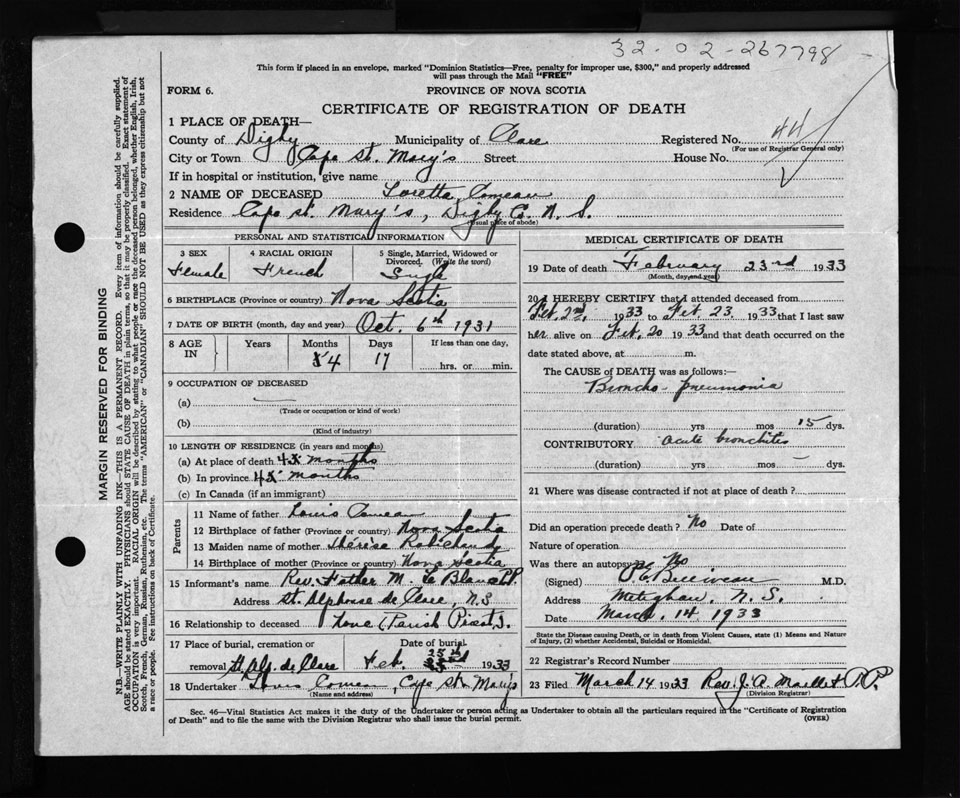 32-02-267798
This form if placed in an envelope, marked "Dominion Statistics—Free, penalty for improper use, $300," and properly addressed
will pass through the Mail "FREE"
FORM 6.
PROVINCE OF NOVA SCOTIA
CERTIFICATE OF REGISTRATION OF DEATH
1 PLACE OF DEATH—
County of Digby Municipality of Clare Registered No. 44
(For use of Registrar General only)
City or Town Cape St. Mary's Street House No.
If in hospital or institution, give name
2 NAME OF DECEASED Loretta Comeau
Residence Cape St. Mary's, Digby C. N. S.
(usual place of abode)
PERSONAL AND STATISTICAL INFORMATION
3 SEX 4 RACIAL ORIGIN 5 Single, Married, Widowed or Divorced. (Write the word)
Female French Single
6 BIRTHPLACE (Province or country) Nova Scotia
7 DATE OF BIRTH (month, day and year) Oct. 6th 1931
8 AGE IN Years Months Days If less than one day,
4 17 hrs. or min.
9 OCCUPATION OF DECEASED
(a)
(Trade or occupation or kind of work)
(b)
(Kind of industry)
10 LENGTH OF RESIDENCE (in years and months)
(a) At place of death 4 months
(b) In province 4 months
(c) In Canada (if an immigrant)
Parents
11 Name of father Louis Comeau
12 Birthplace of father (Province or country) Nova Scotia
13 Maiden name of mother Thérèse Robichaud
14 Birthplace of mother (Province or country) Nova Scotia
15 Informant's name Rev. Father M. Le Blanc
Address St. Alphonse de Clare, N.S
16 Relationship to deceased None (Parish Priest).
17 Place of burial, cremation or Date of burial
removal St. Alp. de Clare Feb. 25 1933
18 Undertaker Louis Comeau, Cape St. Mary's
(Name and address)
MEDICAL CERTIFICATE OF DEATH
19 Date of death February 23rd 1933
(Month, day, and year)
20 I HEREBY CERTIFY that I attended deceased from
Feb. 2nd, 1933 to Feb. 23. 1933 that I last saw
her alive on Feb. 20 1933 and that death occurred on the
date stated above, at m.
The CAUSE of DEATH was as follows:
Broncho-pneumonia
(duration) yrs mos 15 dys.
CONTRIBUTORY acute bronchitis
(duration) yrs mos dys.
21 Where was disease contracted if not at place of death?
Did an operation precede death? No Date of
Nature of operation
Was there an autopsy No
(Signed) Belliveau M.D.
Address Meteghan, N. S.
Date March 14 1933
State the Disease causing Death, or in death from Violent Causes, state (1) Means and Nature
of Injury, (2) whether Accidental, Suicidal or Homicidal.
22 Registrar's Record Number
23 Filed March 14 1933 Rev. J. A. Maillet P.P.
(Division Registrar)
Sec. 46—Vital Statistics Act makes it the duty of the Undertaker or person acting as Undertaker to obtain all the particulars required in the "Certificate of Registration
of Death" and to file the same with the Division Registrar who shall issue the burial permit.
(OVER)
MARGIN RESERVED FOR BINDING
N.B.—WRITE PLAINLY WITH UNFADING INK—THIS IS A PERMANENT RECORD. Every item of information should be carefully supplied.
AGE should be stated EXACTLY. PHYSICIANS should STATE CAUSE OF DEATH in plain terms, so that it may be properly classified. Exact statement of
OCCUPATION is very important. RACIAL ORIGIN will be described by stating to what people or race the deceased person belonged, whether English, Irish,
Scotch, French, German, Russian, Ruthenian, etc. The terms "AMERICAN" or "CANADIAN" SHOULD NOT BE USED as they express citizenship but not
a race or people. See instructions on back of Certificate.